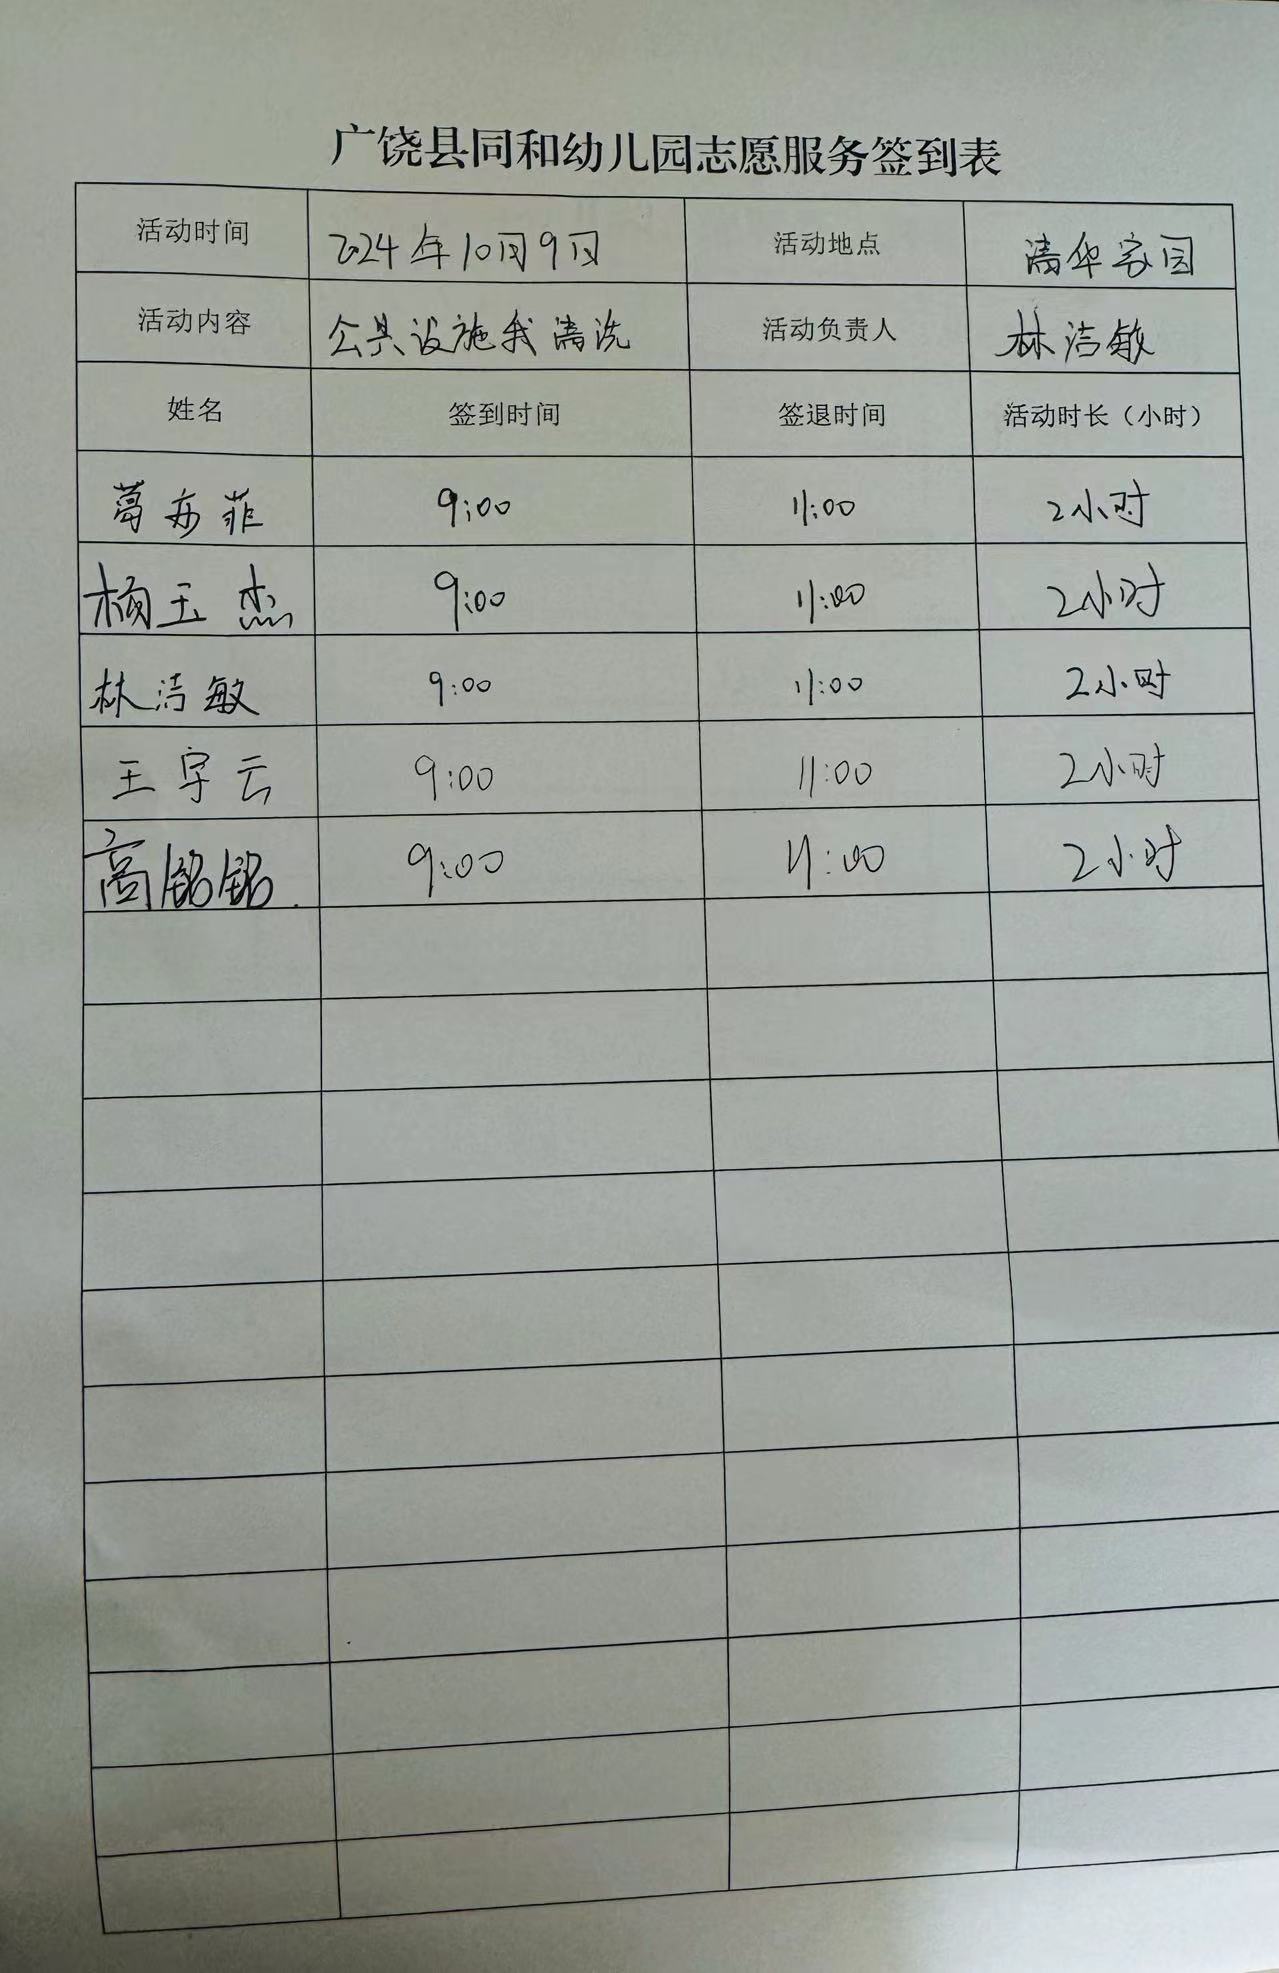 广饶县同和幼儿园志愿服务签到表
活动时间 2024年10月9日 活动地点 清华家园
活动内容 公共设施我清洗 活动负责人 林洁敏
姓名 签到时间 签退时间 活动时长（小时）
葛亦菲 9:00 11:00 2小时
杨玉杰 9:00 11:00 2小时
林洁敏 9:00 11:00 2小时
王宇云 9:00 11:00 2小时
高铭铭 9:00 11:00 2小时